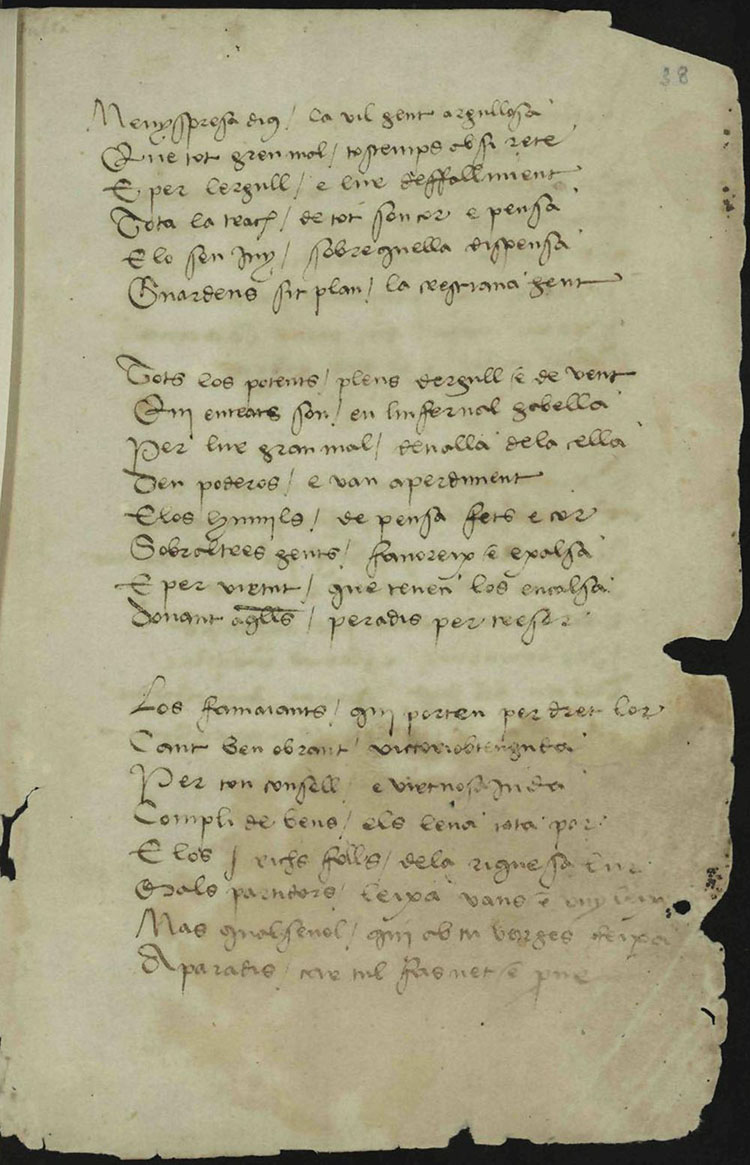 38
Menyspresa dig / la vil gent argullosa
Que tot greu mal / tostemps ab si rete
E per lergull / e lur deffalliment
Tota la tracta / de tot son cor e pensa
E lo seu / sobre quella dispensa
Guardens sit plau / la crestiana gent
Tots los potents / plens dergull e de vent
Qui entrats son / en linfernal gabella
Per lur gran mal / devalla dela cella
Deu poderos / e van aperdiment
E los humils / de pensa fets e cor
Sobraltres gents / favoreix e exalsa
E per virtut / que tenen los encalsa
Donant aglls / peradis per tresor
Los famaiants / qui porten per dret lor
Tant ben obrant / victoriobtenguda
Per ton consell / e virtuosajuda
Compli de bens / els leva tota por
E los richs folls / dela riquesa lur
Mals partidors / leixa vans e
Mas qualsevol / qui ab tu verges deixa
Aparadis / car tul fas net e pur